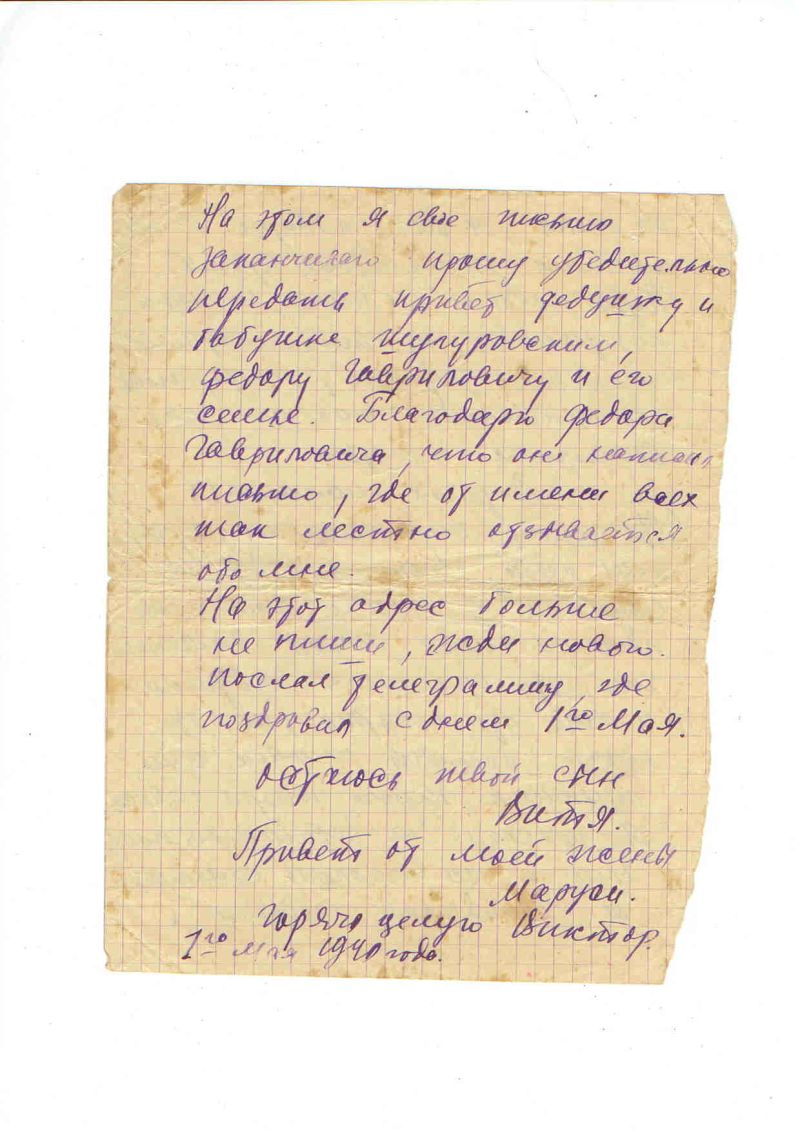 На этом я свое письмо
заканчиваю прошу убедительно
передать привет дедушку и
бабушке Шугуровским,
Федору Гавриловичу и его
семье. Благодарю Федора
Гавриловича, что он написал
письмо, где от имени всех
так лестно отзывается
обо мне.
На этот адрес больше
не пиши, жди нового.
послал телеграмму, где
поздровил с днем 1го Мая.
остаюсь твой сын
Витя.
Привет от моей жены
Маруси.
горячо целую Виктор.
1го Мая 1940 года.